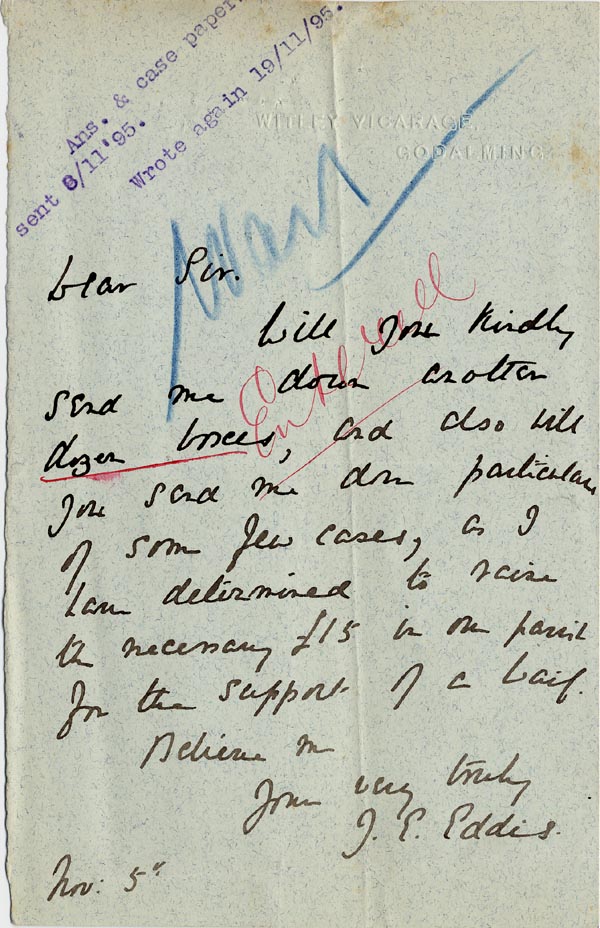 Ans. & case paper
sent 8/11'95.
Wrote again 19/11/95.
WITLEY VICARAGE,
GODALMING.
Dear Sir.
Will you kindly
send me down another
dozen boxes, and also will
you send me down particulars
of some few cases, as I
have determined to raise
the necessary £15 in our parish
for the support of a waif.
Believe me
Yours very truly
J. E. Eddis.
Nov: 5th